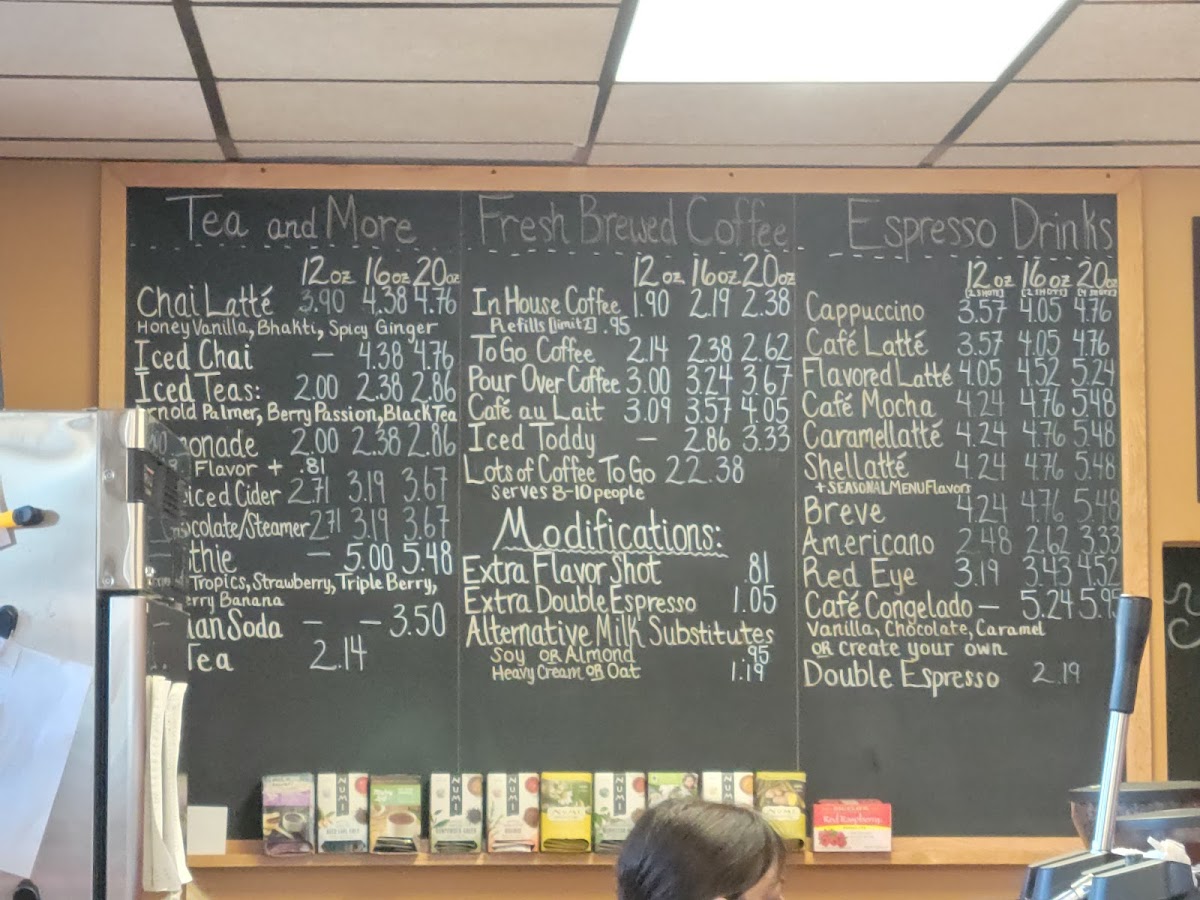 Tea and More
12oz 16oz 20oz
Chai Latté 3.90 4.38 4.76
Honey Vanilla, Bhakti, Spicy Ginger
Iced Chai — 4.38 4.76
Iced Teas: 2.00 2.38 2.86
rnold Palmer, Berry Passion, Black Tea
onade 2.00 2.38 2.86
Flavor + .81
iced Cider 2.71 3.19 3.67
ocolate/Steamer 2.71 3.19 3.67
thie — 5.00 5.48
Tropics, Strawberry, Triple Berry,
erry Banana
ian Soda — — 3.50
Tea 2.14
Fresh Brewed Coffee
12oz 16oz 20oz
In House Coffee 1.90 2.19 2.38
Refills [limit 2] .95
To Go Coffee 2.14 2.38 2.62
Pour Over Coffee 3.00 3.24 3.67
Café au Lait 3.09 3.57 4.05
Iced Toddy — 2.86 3.33
Lots of Coffee To Go 22.38
Serves 8-10 people
Modifications:
Extra Flavor Shot .81
Extra Double Espresso 1.05
Alternative Milk Substitutes
Soy OR Almond .95
Heavy Cream OR Oat 1.19
Espresso Drinks
12oz 16oz 20oz
[2 SHOTS] [2 SHOTS] [4 SHOTS]
Cappuccino 3.57 4.05 4.76
Café Latté 3.57 4.05 4.76
Flavored Latté 4.05 4.52 5.24
Café Mocha 4.24 4.76 5.48
Caramellatté 4.24 4.76 5.48
Shellatté 4.24 4.76 5.48
+ SEASONAL MENU Flavors
Breve 4.24 4.76 5.48
Americano 2.48 2.62 3.33
Red Eye 3.19 3.43 4.52
Café Congelado — 5.24 5.95
Vanilla, Chocolate, Caramel
OR create your own
Double Espresso 2.19
NUMI
NUMI
NUMI
NUMI
Red Raspberry